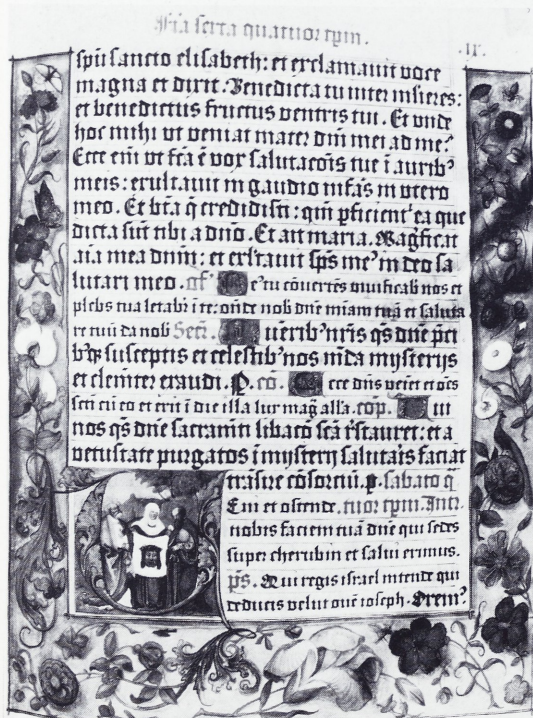 Fia serta quatuor tpm.
.IX.
spu sancto elisabeth: et exclamauit voce
magna et dixit. Benedicta tu inter mlieres:
et benedictus fructus ventris tui. Et vnde
hoc mihi vt veniat mater dni mei ad me?
Ecce eni vt fca e vox salutacois tue i aurib9
meis: exultauit in gaudio infas in vtero
meo. Et bta q credidisti: qm pficient' ea que
dicta sut tibi a dno. Et ait maria. Magficat
aia mea dnm: et exltauit sps me9 in deo sa
lutari meo. of' De9 tu couertes viuificab nos et
plebs tua letabit i te: onde nob dne miam tua et saluta
re tuu da nob Secr. Muerib9 nris qs dne pci
b9q susceptis et celestib9 nos mda mysterijs
et clemter exaudi. P. co. Ecce dns veiet et oes
scti cu eo et erit i die illa lux mag alla. cop. Tui
nos qs dne sacramti libaco sca rstauret: et a
vetustate purgatos i mysterij salutaris faciat
trasire cosorciu. p. sabato q
Eni et ostende. tuor tpm. Intr.
nobis faciem tua dne qui sedes
super cherubin et salui erimus.
ps. Qui regis israel intende qui
deducis velut oue ioseph. Orem9